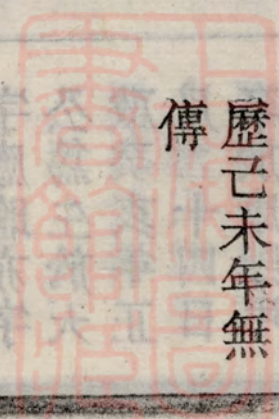 歷己未年無
傳